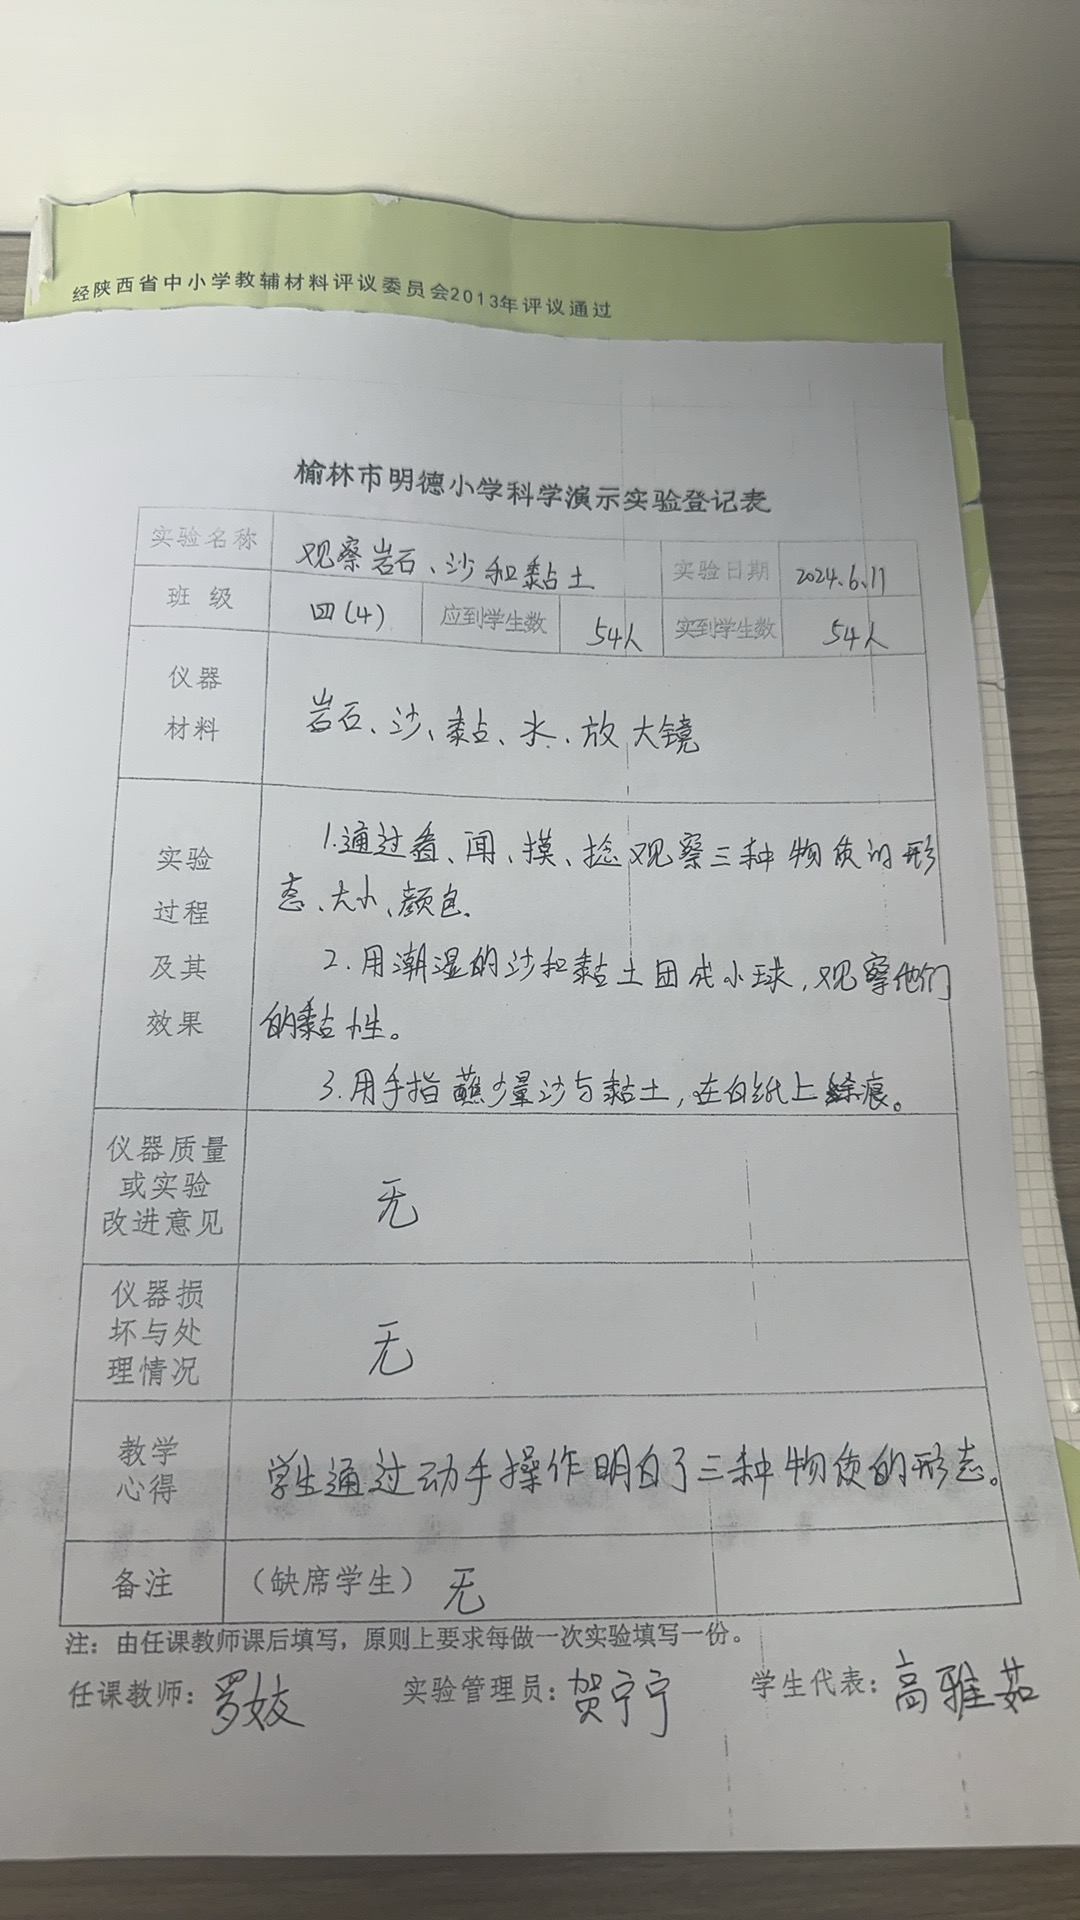 经陕西省中小学教辅材料评议委员会2013年评议通过
榆林市明德小学科学演示实验登记表
实验名称 观察岩石、沙和黏土 实验日期 2024.6.11
班 级 四(4) 应到学生数 54人 实到学生数 54人
仪器
材料
岩石、沙、黏、水、放大镜
实验
过程
及其
效果
1.通过看、闻、摸、捻观察三种物质的形
态、大小、颜色.
2.用潮湿的沙和黏土团成小球,观察他们
的黏性。
3.用手指蘸少量沙与黏土,在白纸上痕。
仪器质量
或实验
改进意见
无
仪器损
坏与处
理情况
无
教学
心得
学生通过动手操作明白了三种物质的形态。
备注 (缺席学生) 无
注：由任课教师课后填写，原则上要求每做一次实验填写一份。
任课教师: 罗 实验管理员: 贺宁宁 学生代表: 高雅茹